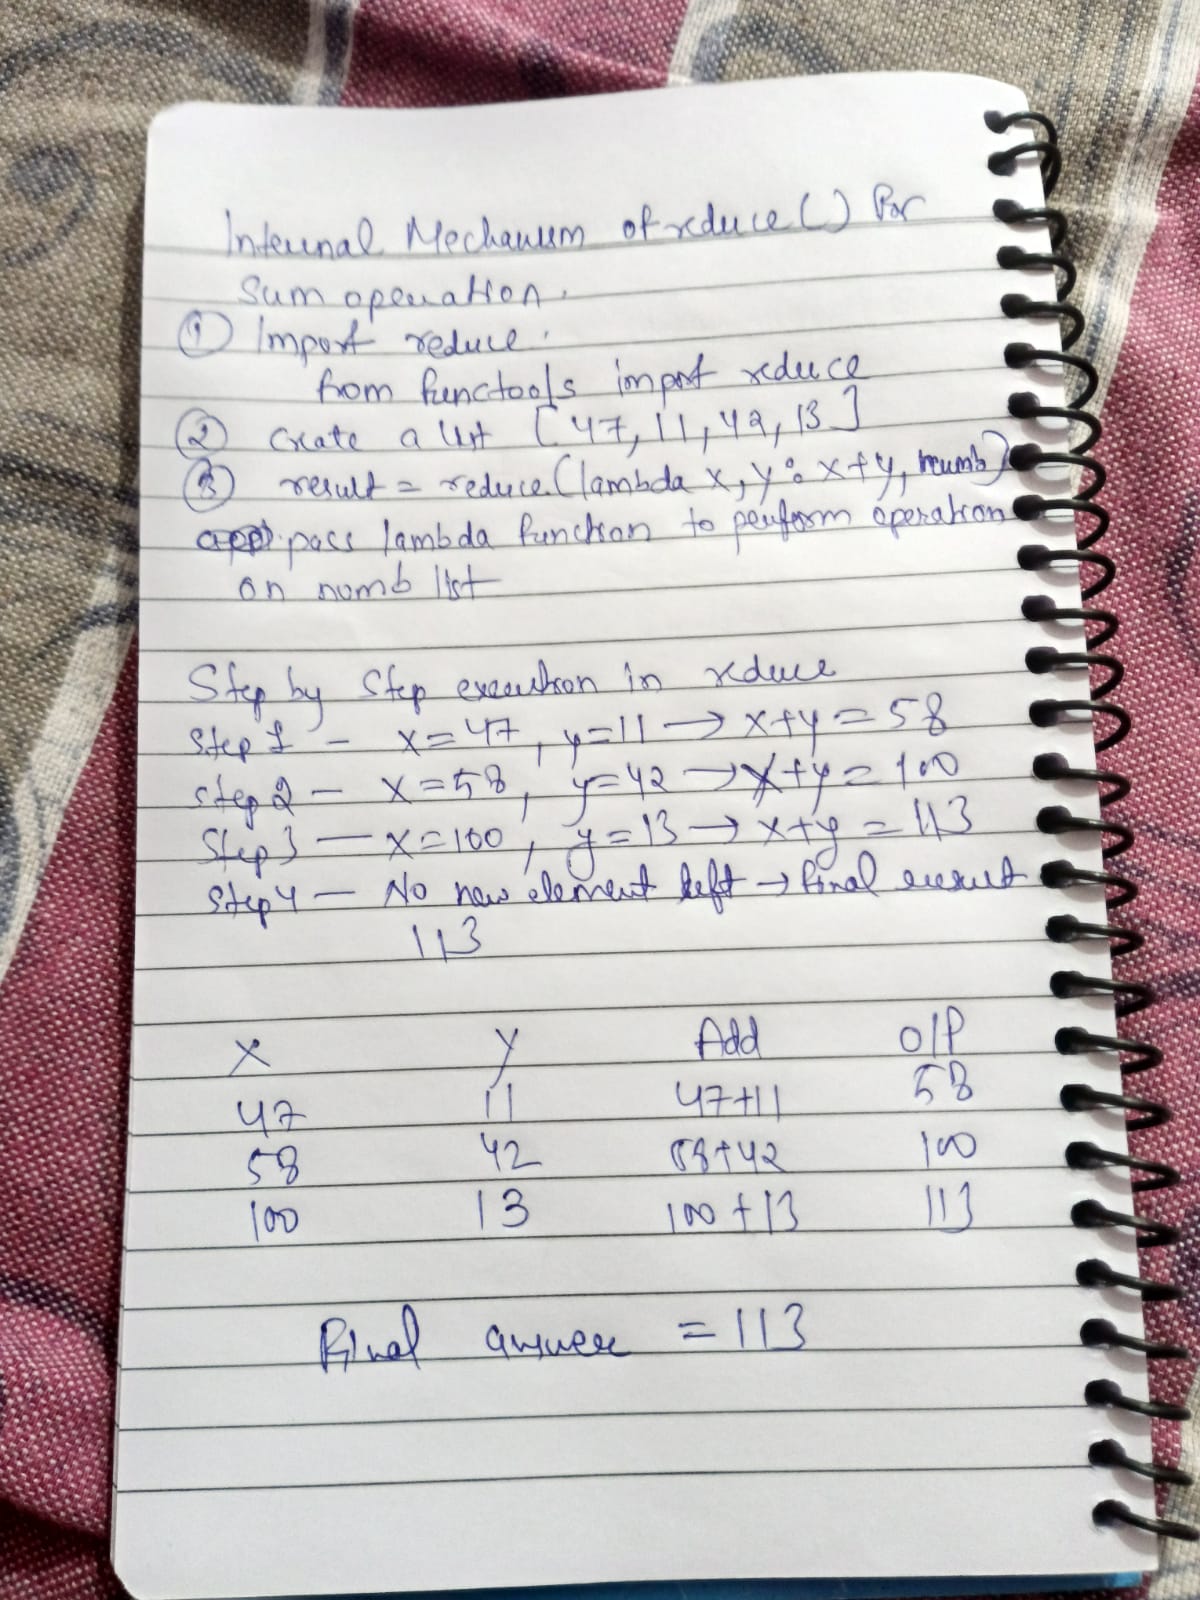 Internal Mechanism of reduce() for
Sum operation.
① Import reduce.
from functools import reduce
② Create a list [47, 11, 42, 13]
③ result = reduce(lambda x, y: x+y, numb)
pass lambda function to perform operation
on numb list
Step by Step execution in reduce
Step 1 - x=47, y=11 → x+y = 58
Step 2 - x=58, y=42 → x+y = 100
Step 3 - x=100, y=13 → x+y = 113
Step 4 - No new element left → final result
113
x y Add O/P
47 11 47+11 58
58 42 58+42 100
100 13 100+13 113
Final answer = 113